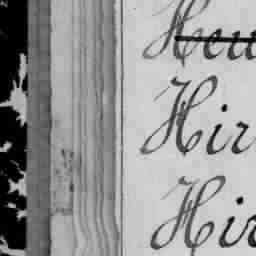 Heu
Hir
Hir